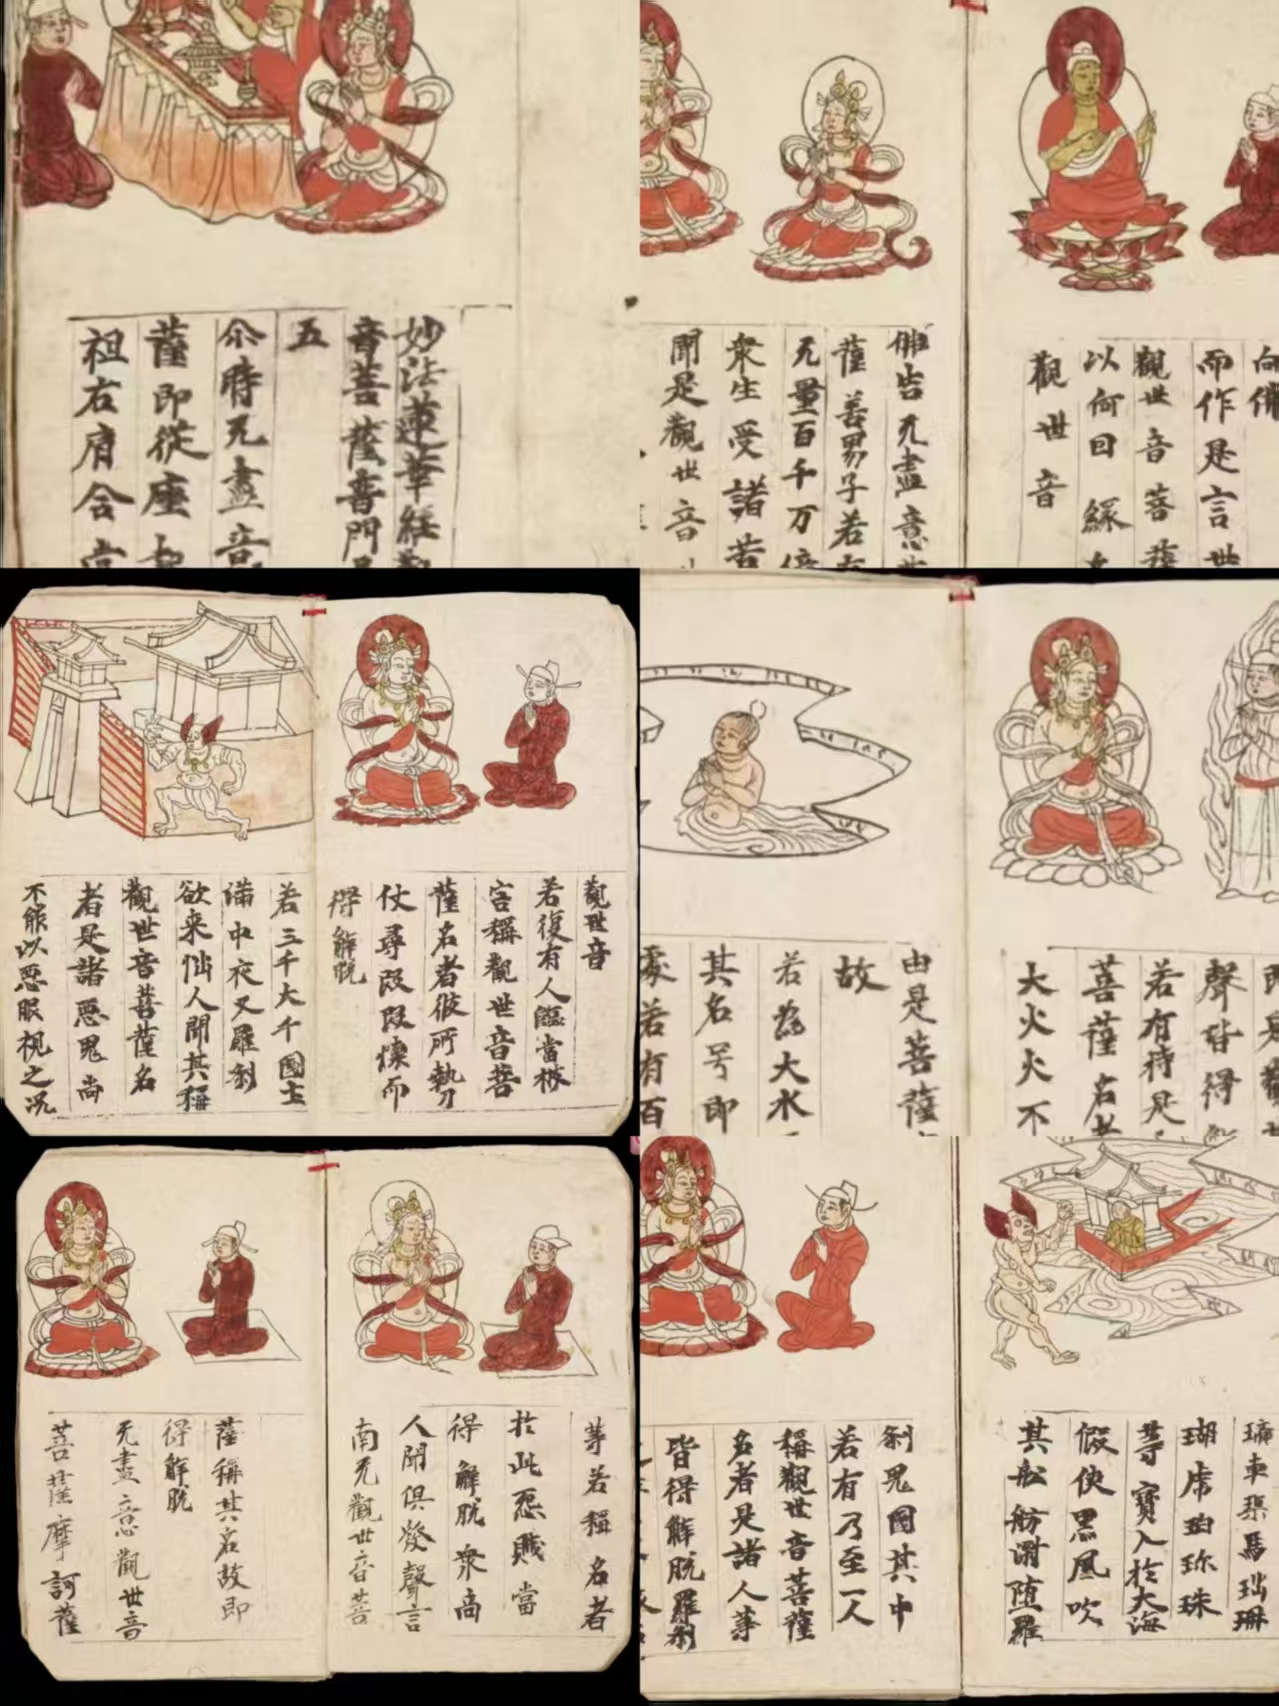 妙法蓮華經
音菩薩普門
五
尒時无盡意
薩即從座
袒右肩合向
向佛
而作是言世
觀世音菩薩
以何因緣
觀世音
佛告无盡意
薩善男子若有
无量百千万億
衆生受諸苦
聞是觀世音
觀世音
若復有人臨當被
害稱觀世音菩
薩名者彼所執刀
仗尋段段懷而
得解脫
若三千大千國土
滿中夜叉羅剎
欲来惱人聞其稱
觀世音菩薩名
者是諸惡鬼尚
不能以惡眼視之况
即是觀世
聲皆得
若有持是
菩薩名者
大火火不
由是菩薩
故
若為大水
其名号即
處若有百
等若稱名者
於此惡賊當
得解脫衆商
人聞俱發聲言
南无觀世音菩
薩稱其名故即
得解脫
无盡意觀世音
菩薩摩訶薩
車璖馬瑙珊
瑚虎珀珎珠
等寶入於大海
假使黑風吹
其舩舫漂堕羅
剎鬼國其中
若有乃至一人
稱觀世音菩薩
名者是諸人等
皆得解脫羅剎